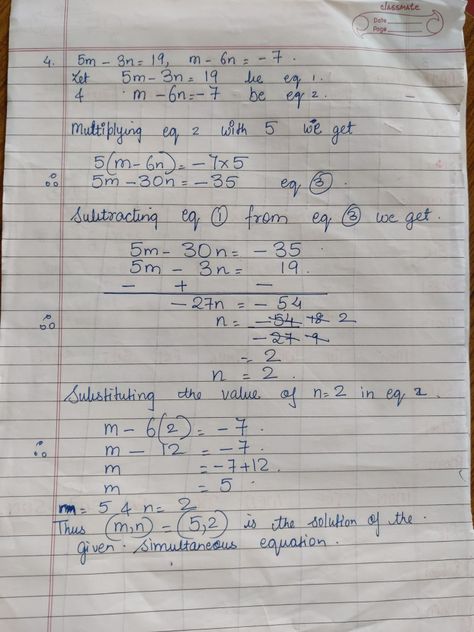 classmate
Date
Page
4. 5m - 3n = 19, m - 6n = -7.
Let 5m - 3n = 19 be eq 1.
& m - 6n = -7 be eq 2.
Multiplying eq 2 with 5 we get
5(m - 6n) = -7×5
∴ 5m - 30n = -35 eq ③.
Subtracting eq ① from eq ③ we get.
5m - 30n = -35
5m - 3n = 19.
- + -
-27n = -54
∴ n = -54 18 2
-27 9
= 2
n = 2.
Substituting the value of n=2 in eq 2.
m - 6(2) = -7.
∴ m - 12 = -7.
m = -7+12.
m = 5.
m = 5 & n = 2
Thus (m,n) = (5,2) is the solution of the
given simultaneous equation.